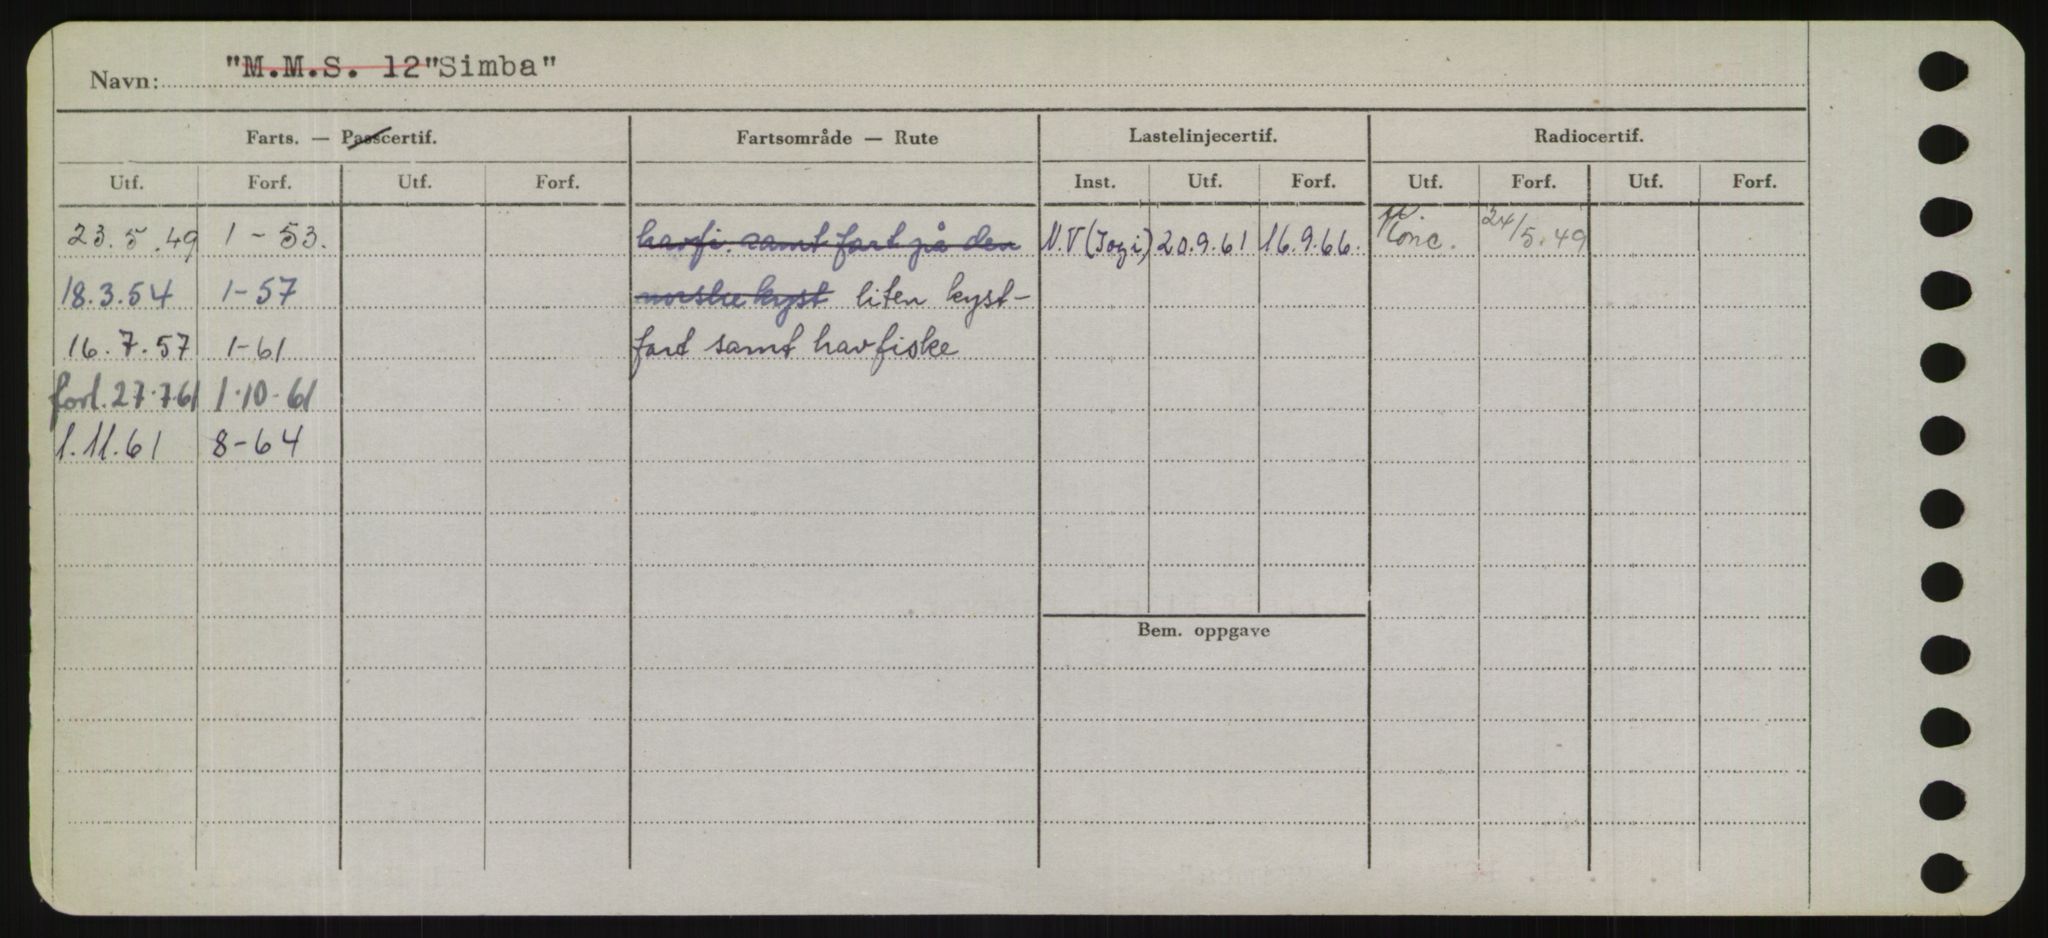 Navn: "M.M.S. 12"Simba"
Farts. — Passcertif. Fartsområde — Rute Lastelinjecertif. Radiocertif.
Utf. Forf. Utf. Forf. Inst. Utf. Forf. Utf. Forf. Utf. Forf.
23.5.49 1-53. havfi. samt fart på den N.V 20.9.61 16.9.66. Konc. 24/5.49
18.3.54 1-57 norske kyst liten kyst-
16.7.57 1-61 fart samt havfiske
forl. 27.7.61 1.10.61
1.11.61 8-64
Bem. oppgave